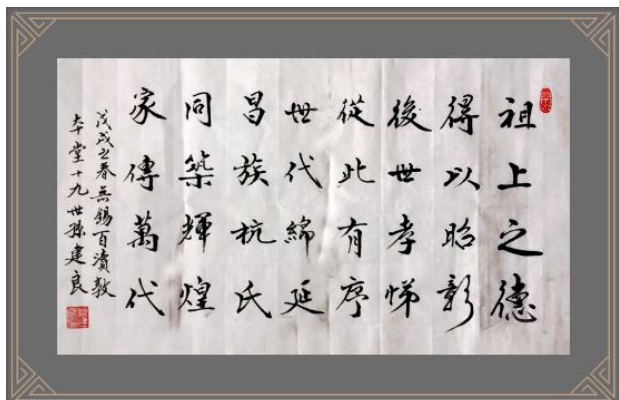 祖上之德
得以昭彰
後世孝悌
從此有序
世代綿延
昌族杭氏
同築輝煌
家傳萬代
戊戌之春無錫百瀆敦
本堂十九世孫建良